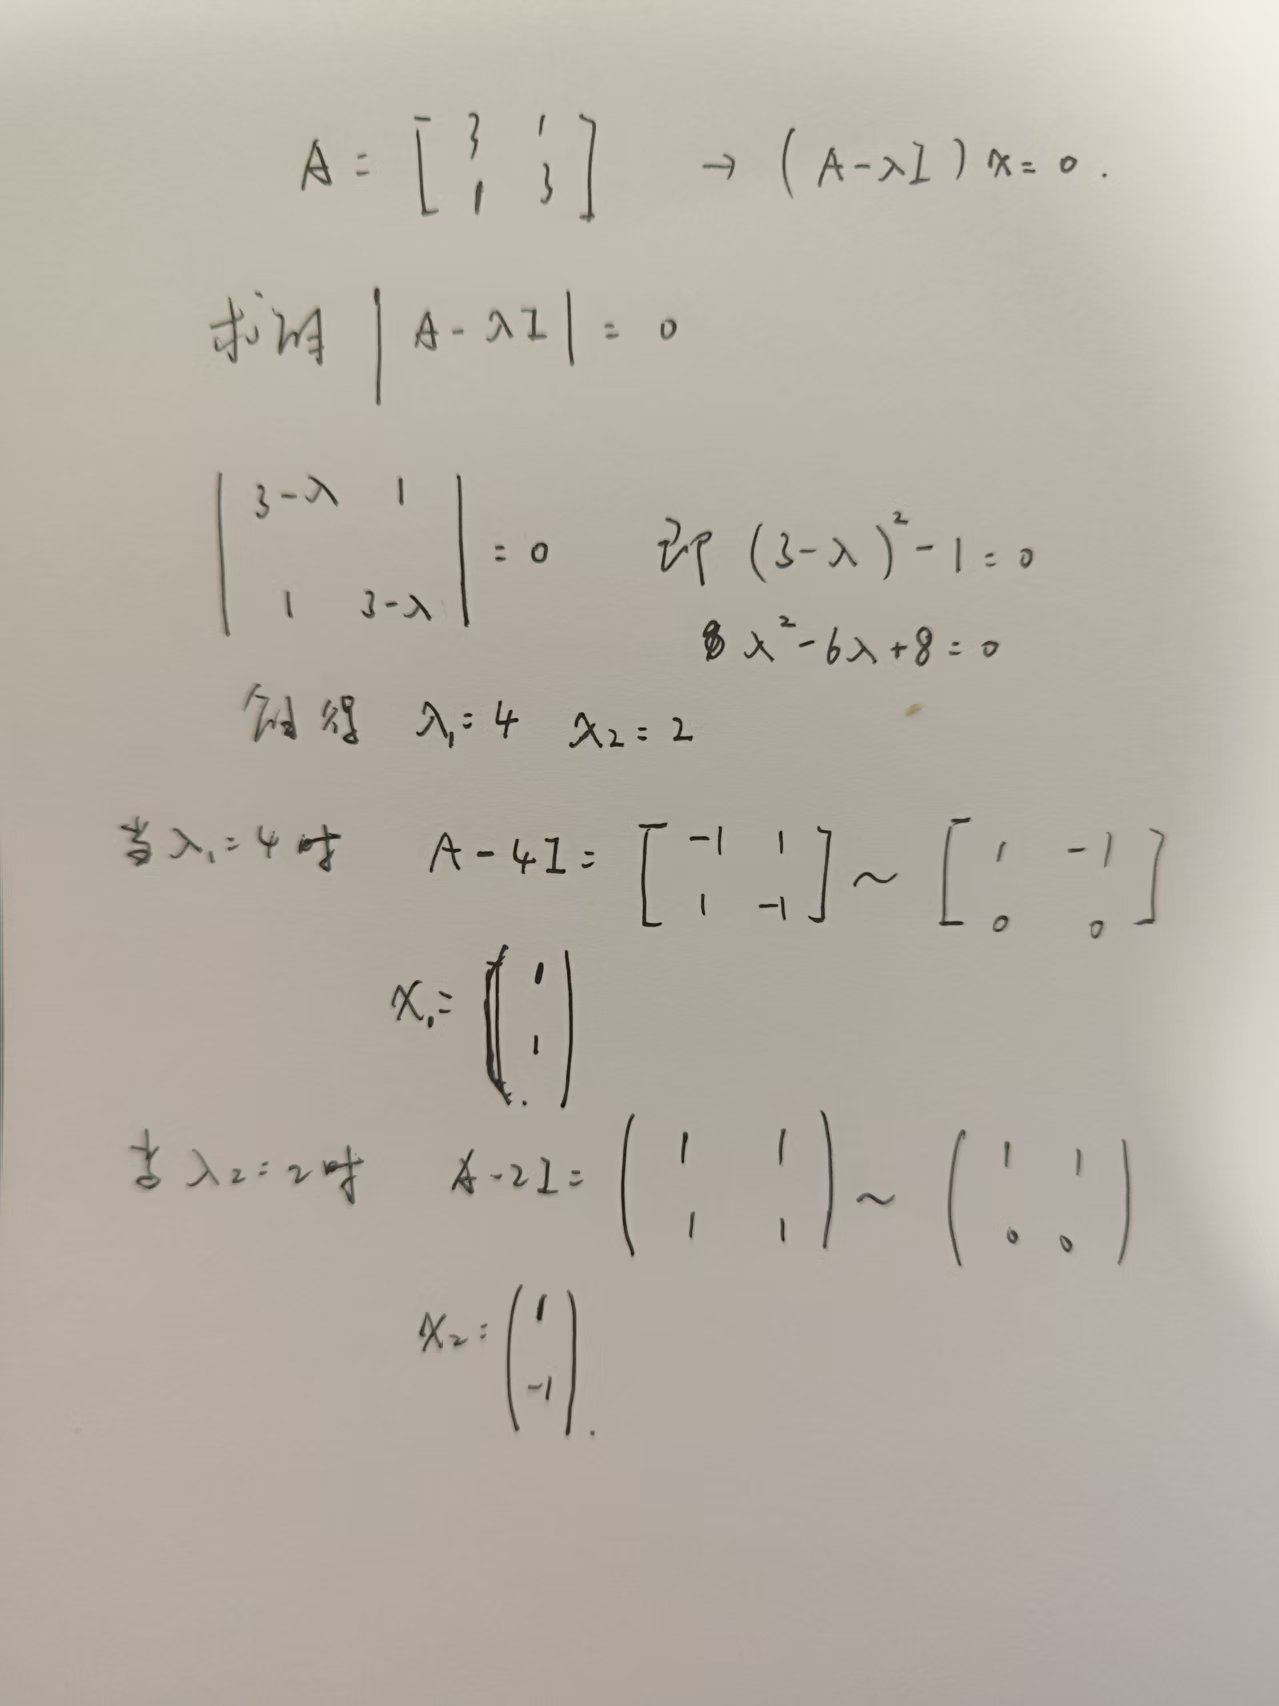 A = [ 3 1 ; 1 3 ] → ( A - λI ) x = 0 .
求解 | A - λI | = 0
| 3-λ 1 ; 1 3-λ | = 0 即 (3-λ)² - 1 = 0
λ² - 6λ + 8 = 0
解得 λ₁ = 4 λ₂ = 2
当 λ₁ = 4 时 A - 4I = [ -1 1 ; 1 -1 ] ~ [ 1 -1 ; 0 0 ]
x₁ = ( 1 ; 1 )
当 λ₂ = 2 时 A - 2I = ( 1 1 ; 1 1 ) ~ ( 1 1 ; 0 0 )
x₂ = ( 1 ; -1 ) .